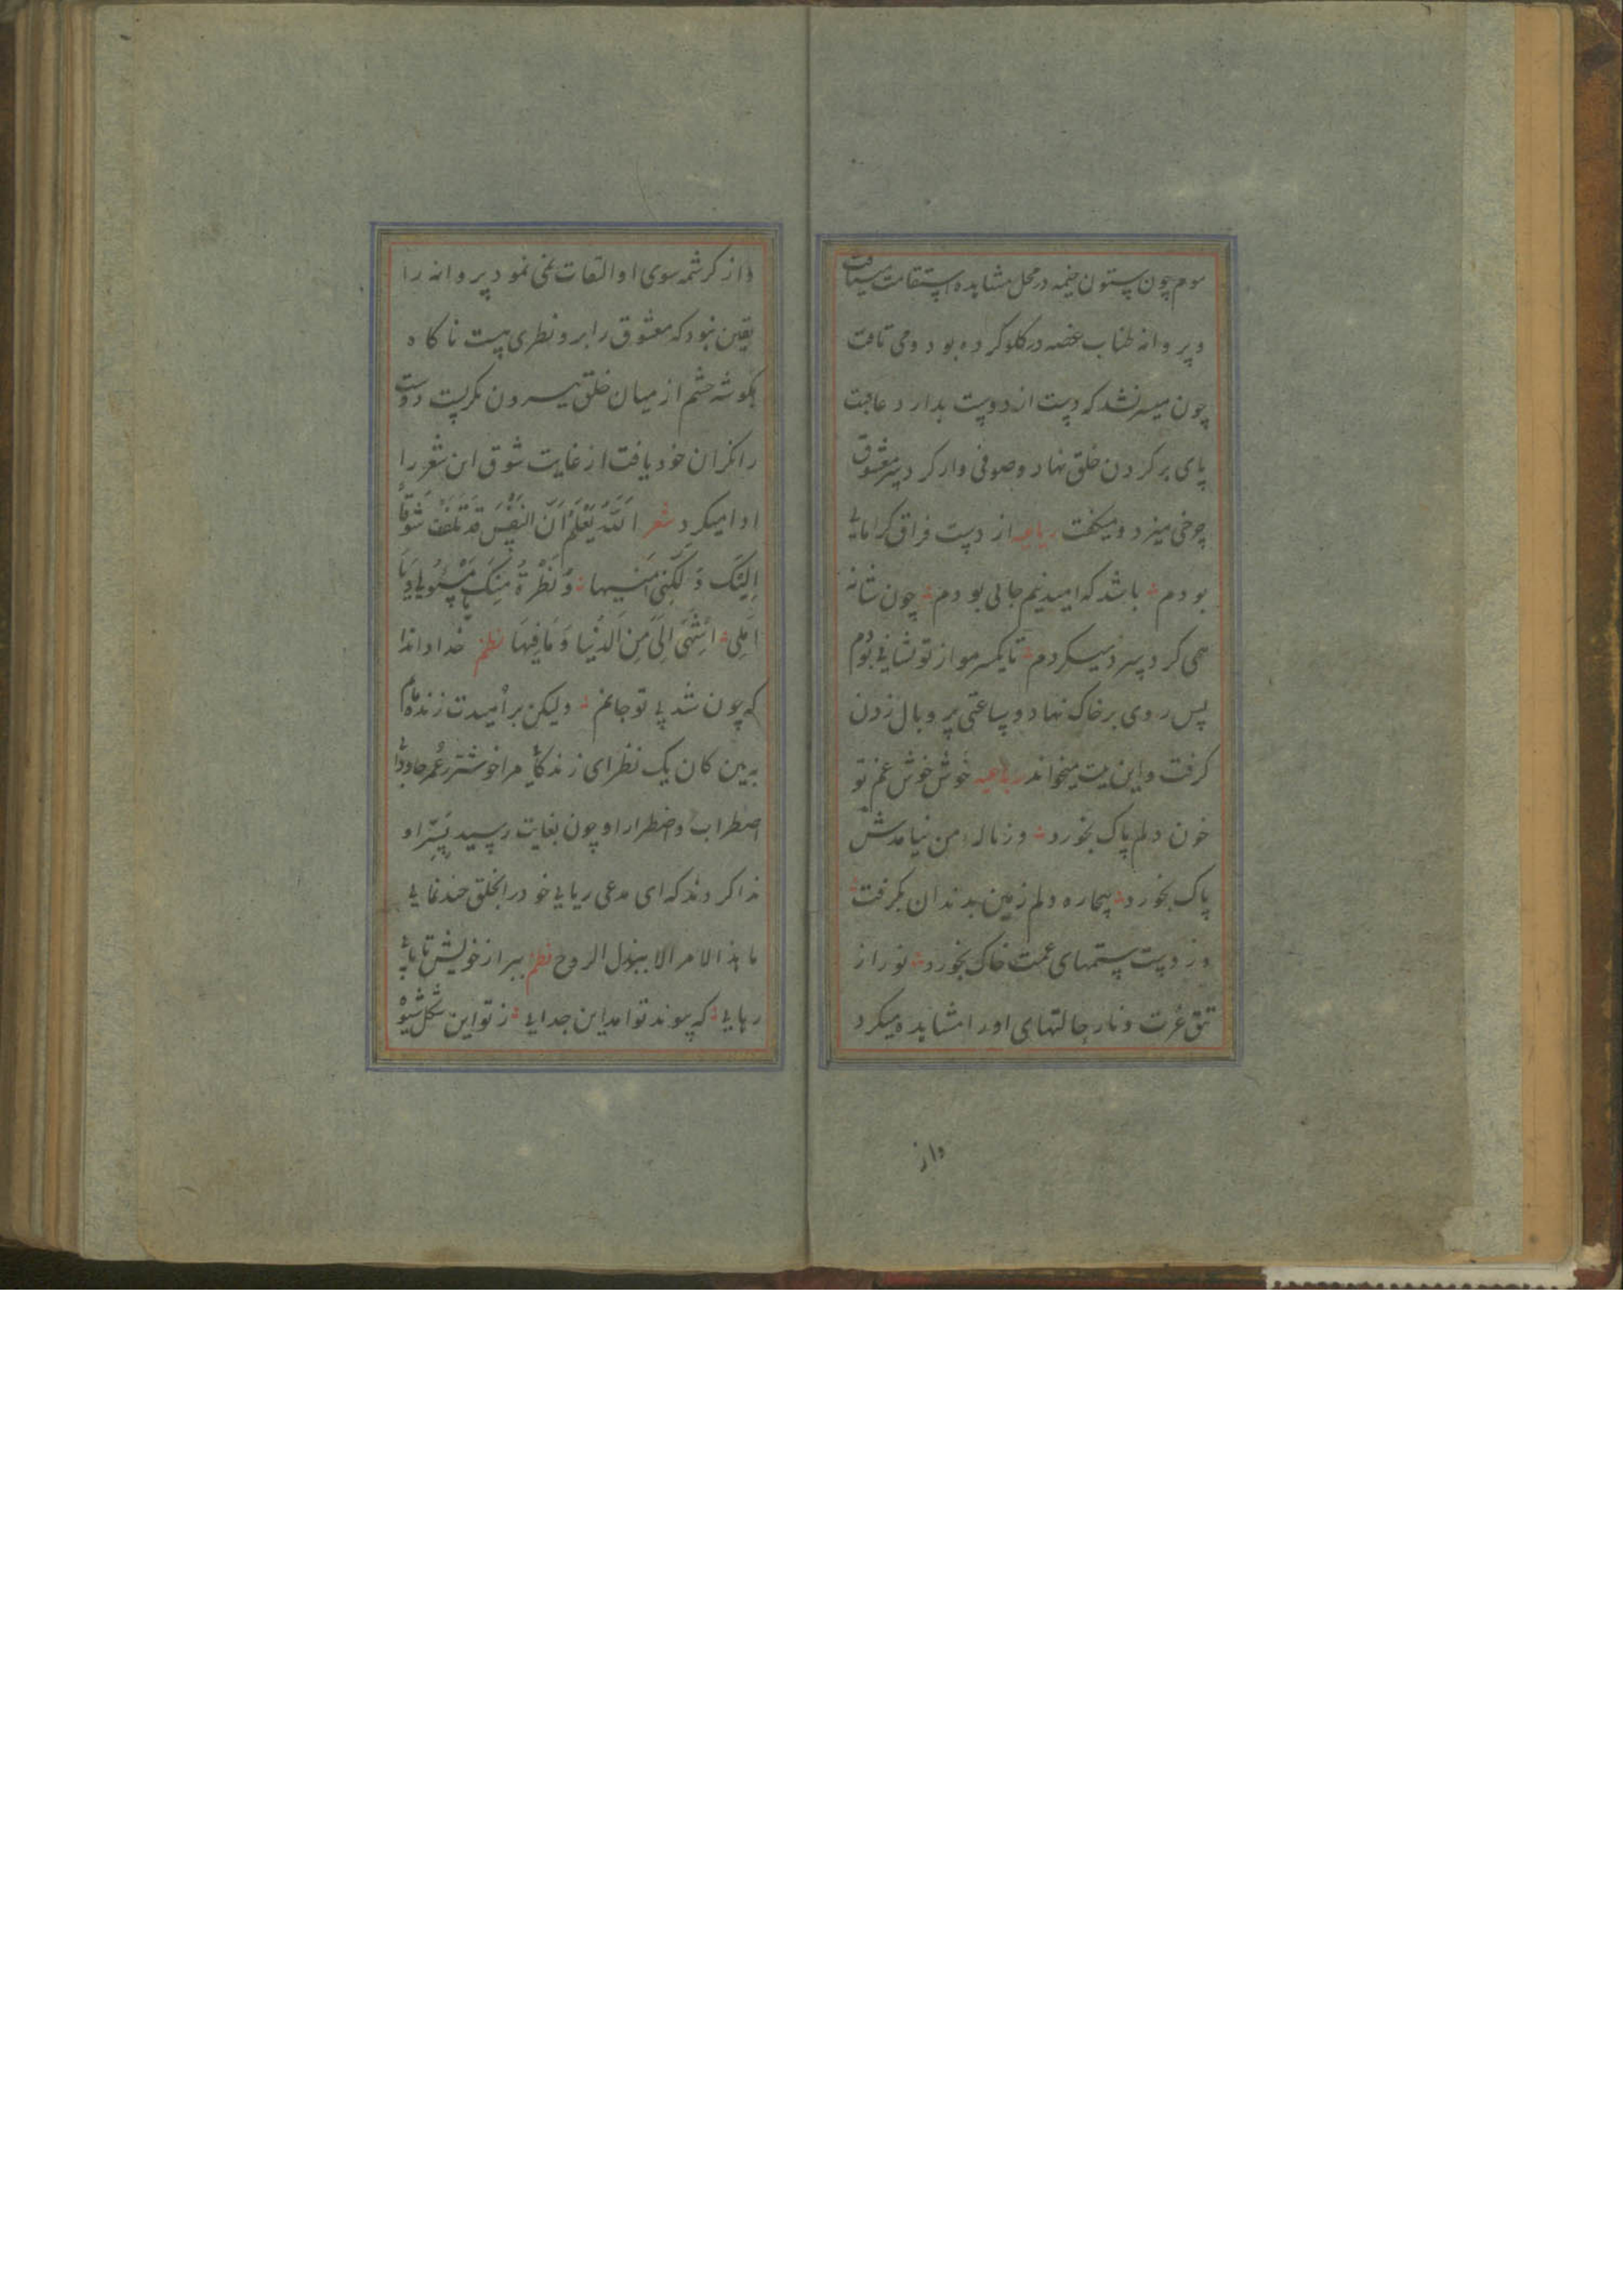 موم چون ستون خیمه در محل مشاهده استقامت مییافت
و پروانه طناب غصه در گلو کرده بود و می تافت
چون میسر نشد که دست از دوست بدارد عاقبت
پای بر گردن خلق نهاد و صوفی وار گرد سر معشوق
چرخی میزد و میگفت رباعیه از دست فراق گر امانی
بودم باشد که امید نیم جانی بودم چون شانه
همی گرد سرت میگردم تا یکسر مو از تو نشانی بودم
پس روی بر خاک نهاد و ساعتی پر و بال زدن
گرفت و این بیت میخواند رباعیه خوش خوش غم تو
خون دلم پاک بخورد وز ناله من نیامدش
پاک بخورد بیچاره دلم زمین بدندان بگرفت
وز دست ستمهای غمت خاک بخورد نور از
تتق عزت و نار حالتهای او را مشاهده میکرد
واز
واز کرشمه سوی او التفات نمی نمود پروانه را
یقین نبود که معشوق را برو نظری هست ناگاه
بگوشه چشم از میان خلق بیرون نگریست دوست
را نگران خود یافت از غایت شوق این شعر را
ادا میکرد شعر الله یعلم ان النفس قد تلفت شوقا
الیک ولکنی امنیها ونظرة منک یا سؤلی ویا
املی اشهی الی من الدنیا وما فیها نظم خدا داند
که چون شد بی تو جانم ولیکن بر امیدت زنده مانم
به بین کان یک نظر ای زندگانی مرا خوشتر ز عمر جاودانی
اضطراب و اضطرار او چون بغایت رسید بسر او
ندا کردند که ای مدعی ریایی خود را بخلق چند نمایی
ما هذا الامر الا ببذل الروح نظم ببر از خویش تا یابی
رهایی که پیوند تو آمد این جدایی ز تو این شکل شیوه